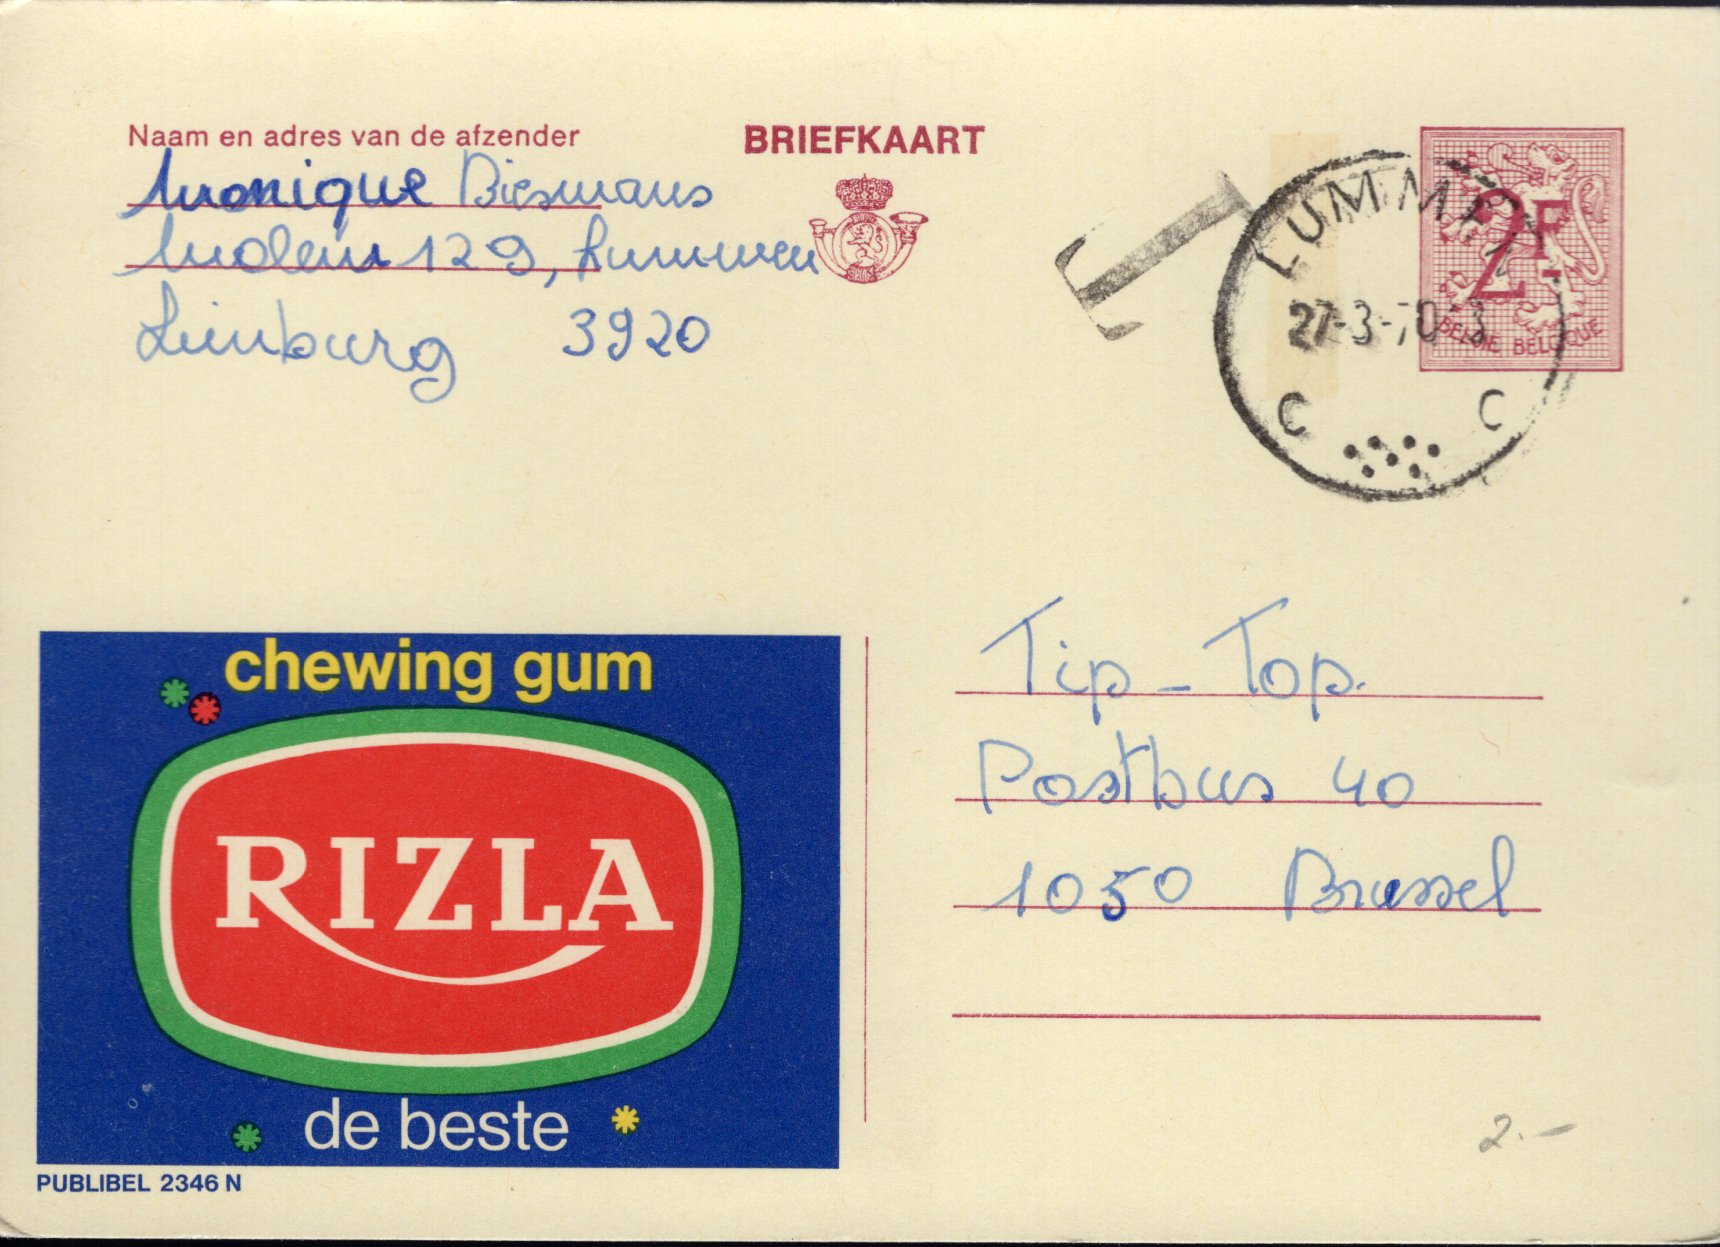 Naam en adres van de afzender
BRIEFKAART
Monique Biesmans
Molem 129, Lummen
Limburg 3920
T
LUMMEN
27-3-70
C C
2F
BELGIE BELGIQUE
chewing gum
RIZLA
de beste
PUBLIBEL 2346 N
Tip-Top.
Postbus 40
1050 Brussel
2.-